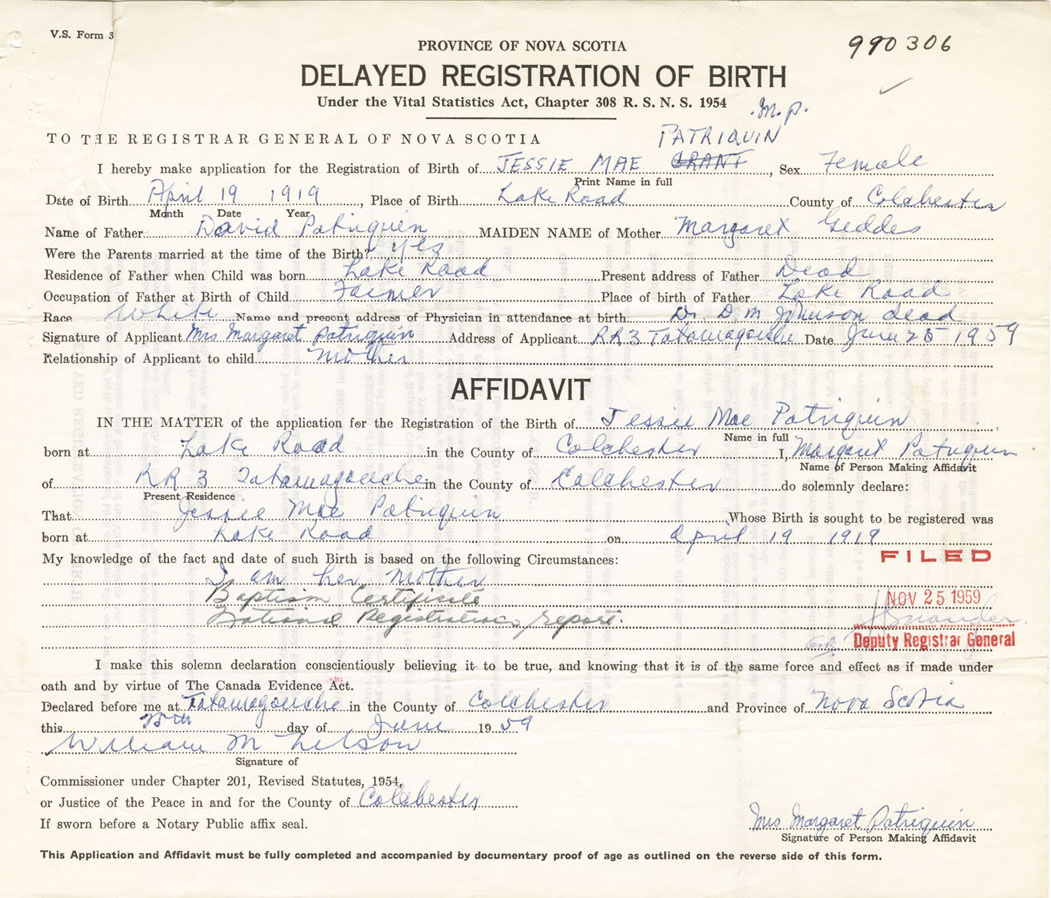 V.S. Form 3
990306
PROVINCE OF NOVA SCOTIA
DELAYED REGISTRATION OF BIRTH
Under the Vital Statistics Act, Chapter 308 R. S. N. S. 1954
M.P.
TO THE REGISTRAR GENERAL OF NOVA SCOTIA
PATRIQUIN
I hereby make application for the Registration of Birth of JESSIE MAE GRANT, Sex Female
Print Name in full
Date of Birth April 19 1919, Place of Birth Lake Road County of Colchester
Month Date Year
Name of Father David Patriquin MAIDEN NAME of Mother Margaret Geddes
Were the Parents married at the time of the Birth? Yes
Residence of Father when Child was born Lake Road Present address of Father Dead
Occupation of Father at Birth of Child Farmer Place of birth of Father Lake Road
Race White Name and present address of Physician in attendance at birth Dr. D M Johnson dead
Signature of Applicant Mrs Margaret Patriquin Address of Applicant RR3 Tatamagouche Date June 25 1959
Relationship of Applicant to child Mother
AFFIDAVIT
IN THE MATTER of the application for the Registration of the Birth of Jessie Mae Patriquin
Name in full
born at Lake Road in the County of Colchester I, Margaret Patriquin
Name of Person Making Affidavit
of RR 3 Tatamagouche in the County of Colchester do solemnly declare:
Present Residence
That Jessie Mae Patriquin Whose Birth is sought to be registered was
born at Lake Road on April 19 1919
My knowledge of the fact and date of such Birth is based on the following Circumstances:
FILED
I am her Mother
Baptism Certificate
NOV 25 1959
National Registration report.
Deputy Registrar General
I make this solemn declaration conscientiously believing it to be true, and knowing that it is of the same force and effect as if made under
oath and by virtue of The Canada Evidence Act.
Declared before me at Tatamagouche in the County of Colchester and Province of Nova Scotia
this 25th day of June 1959
William M
Signature of
Commissioner under Chapter 201, Revised Statutes, 1954,
or Justice of the Peace in and for the County of Colchester
If sworn before a Notary Public affix seal.
Mrs Margaret Patriquin
Signature of Person Making Affidavit
This Application and Affidavit must be fully completed and accompanied by documentary proof of age as outlined on the reverse side of this form.